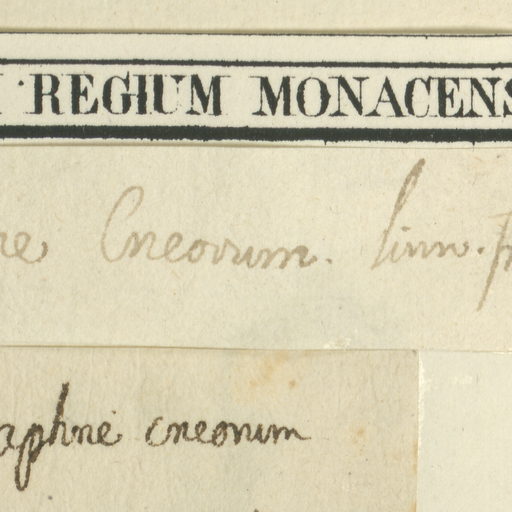 REGIUM MONACENS
Cneorum. Linn.
aphne cneorum